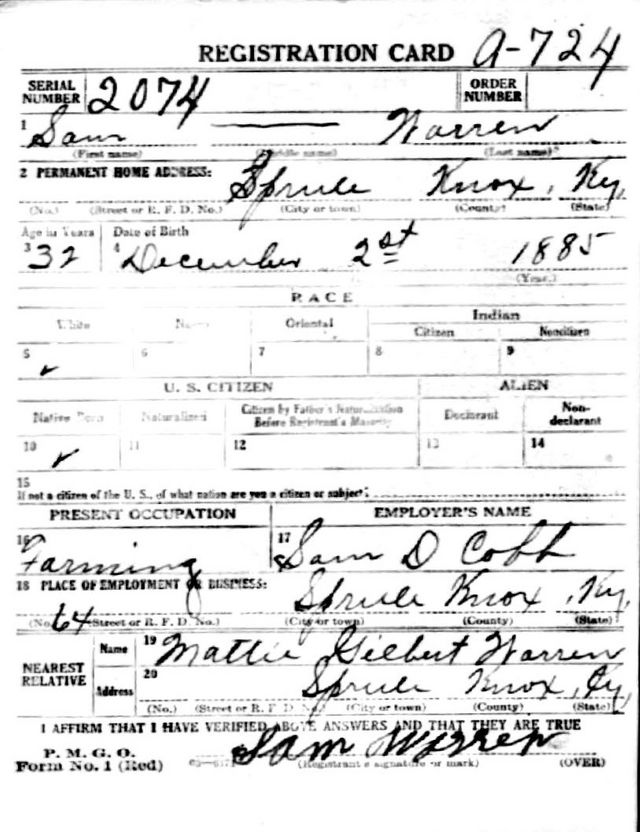 REGISTRATION CARD A-724
SERIAL NUMBER 2074 ORDER NUMBER
1 Sam — Warren
(First name) (Middle name) (Last name)
2 PERMANENT HOME ADDRESS: Sprule Knox, Ky,
(No.) (Street or R. F. D. No.) (City or town) (County) (State)
Age in Years Date of Birth
3 32 4 December 2st 1885
(Year.)
RACE
White Negro Oriental Indian
Citizen Noncitizen
5 ✓ 6 7 8 9
U. S. CITIZEN ALIEN
Native Born Naturalized Citizen by Father's Naturalization Before Registrant's Majority Declarant Non-declarant
10 ✓ 11 12 13 14
15
If not a citizen of the U. S., of what nation are you a citizen or subject?
PRESENT OCCUPATION EMPLOYER'S NAME
16 Farming 17 Sam D Cobb
18 PLACE OF EMPLOYMENT OR BUSINESS: Sprule Knox, Ky,
(No. 64 (Street or R. F. D. No.) (City or town) (County) (State)
NEAREST RELATIVE Name 19 Mattie Gilbert Warren
Address 20 Sprule Knox, Ky,
(No.) (Street or R. F. D. No.) (City or town) (County) (State)
I AFFIRM THAT I HAVE VERIFIED ABOVE ANSWERS AND THAT THEY ARE TRUE
P. M. G. O.
Form No. 1 (Red) Sam Warren
(Registrant's signature or mark) (OVER)